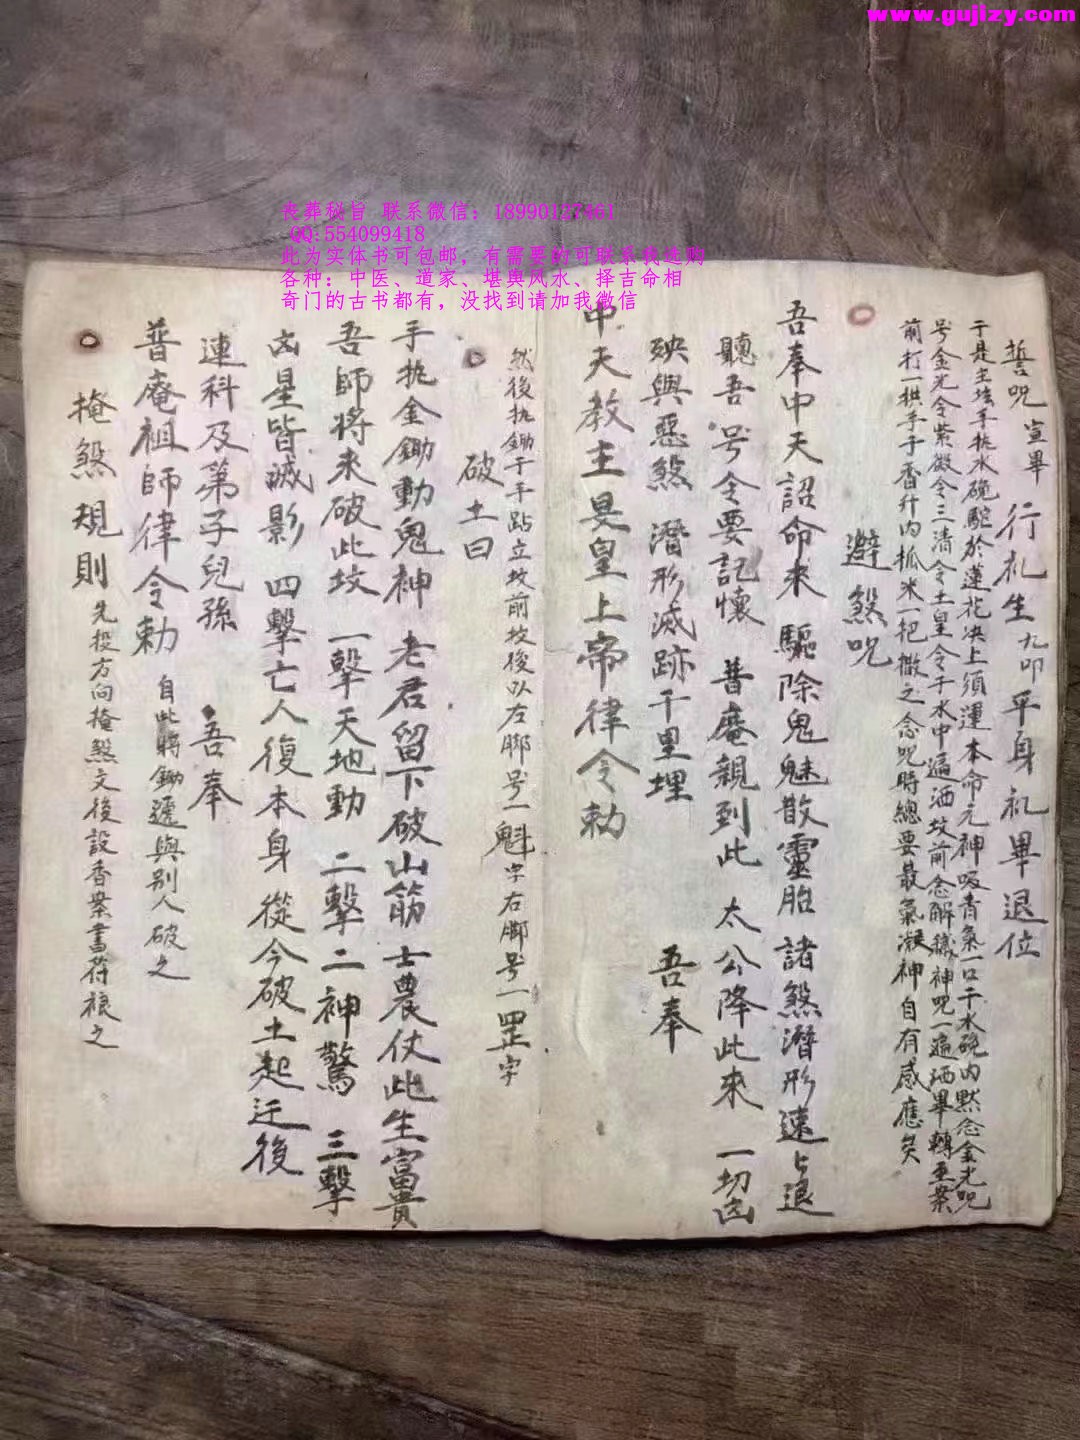 www.gujizy.com
丧葬秘旨 联系微信：18990127461
QQ:554099418
此为实体书可包邮，有需要的可联系我选购
各种：中医、道家、堪舆风水、择吉命相
奇门的古书都有，没找到请加我微信
誓呪宣畢 行礼生九叩平身礼畢退位
于是主坛手执水碗駝於蓮花决上須運本命元神吸青氣一口于水碗内黙念金光呪
号金光令紫微令三清令土皇令于水中遍洒坟前念解穢神呪一遍洒畢轉至案
前打一拱手于香升内抓米一把撒之念呪時總要最氣凝神自有感應矣
避煞呪
吾奉中天詔命來 驅除鬼魅散靈胎 諸煞潛形速上退
聽吾号令要記懷 普庵親到此 太公降此來 一切凶
殃與惡煞 潛形滅跡千里埋 吾奉
中天教主昊皇上帝律令勅
然後执鋤于手跕立坟前坟後以左脚号一魁字右脚号一罡字
破土曰
手执金鋤動鬼神 老君留下破山筋 士農仗此生富貴
吾師將來破此坟 一擊天地動 二擊二神驚 三擊
凶星皆滅影 四擊亡人復本身 從今破土起迁後
連科及第子兒孫 吾奉
普庵祖師律令勅 自此將鋤遞與别人破之
掩煞規則 先投方向掩煞文後設香案書符禳之